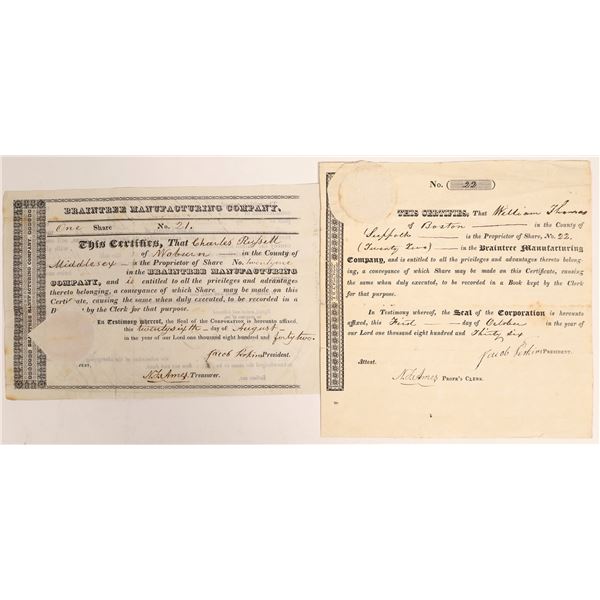 BRAINTREE MANUFACTURING COMPANY.
One Share No. 21.
This Certifies, That Charles Russell
of Woburn in the County of
Middlesex is the Proprietor of Share No. twenty one
in the BRAINTREE MANUFACTURING
COMPANY, and is entitled to all the privileges and advantages
thereto belonging, a conveyance of which Share may be made on this
Certificate, causing the same when duly executed, to be recorded in a
by the Clerk for that purpose.
In Testimony whereof, the Seal of the CORPORATION is hereunto affixed,
this twenty sixth day of August
in the year of our Lord one thousand eight hundred and forty two.
Jacob Perkins President.
N. L. Ames Treasurer.
No. 22
THIS CERTIFIES, That William Thomas
of Boston in the County of
Suffolk is the Proprietor of Share, No. 22
(Twenty Two) in the Braintree Manufacturing
Company, and is entitled to all the privileges and advantages thereto belong-
ing, a conveyance of which Share may be made on this Certificate, causing
the same when duly executed, to be recorded in a Book kept by the Clerk
for that purpose.
In Testimony whereof, the Seal of the Corporation is hereunto
affixed, this First day of October in the year of
our Lord one thousand eight hundred and Thirty Six
Jacob Perkins PRESIDENT.
Attest.
N. L. Ames PROPR'S CLERK.